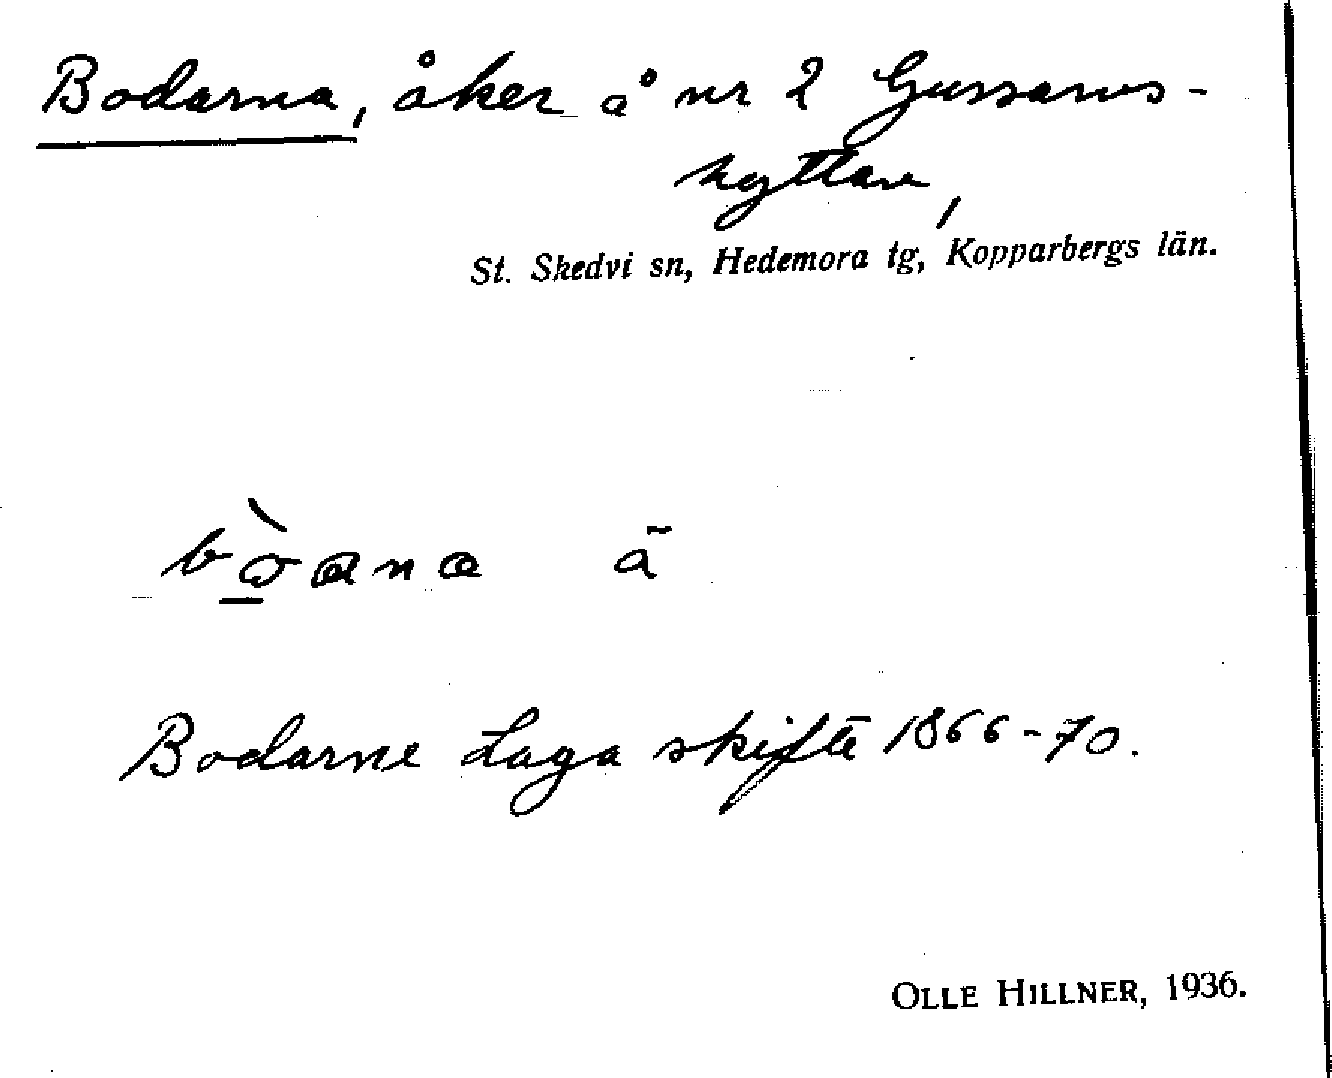 Bodarna, åker å nr 2 Gussarvs-
hyttan,
St. Skedvi sn, Hedemora tg, Kopparbergs län.
ã
Bodarne Laga skifte 1866-70.
OLLE HILLNER, 1936.